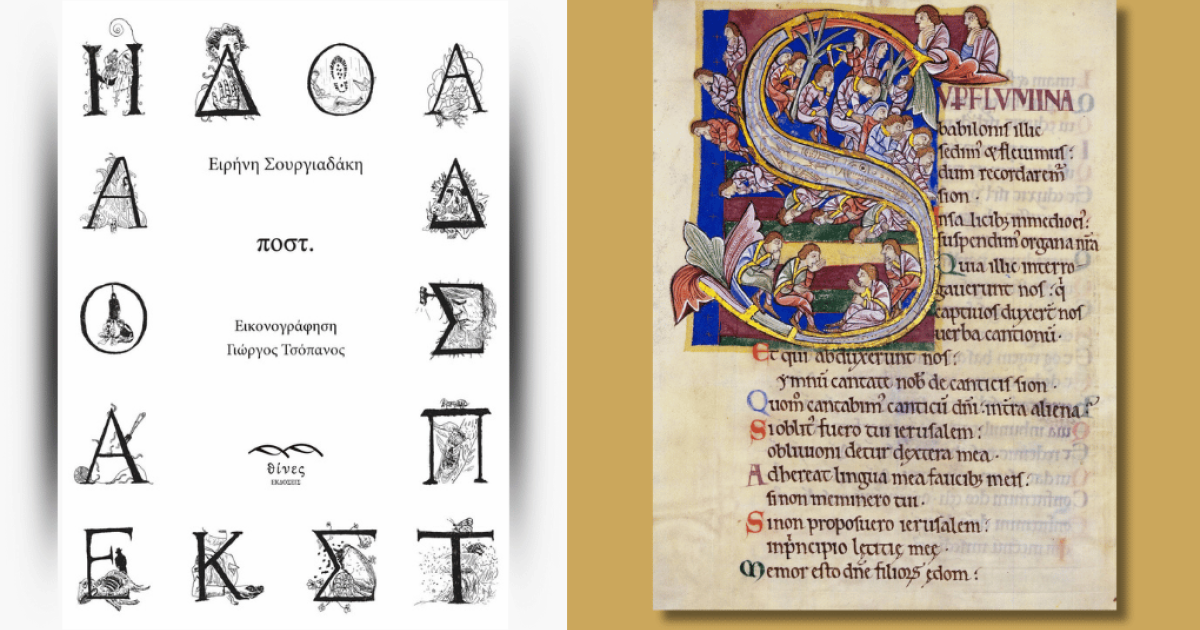 Η Δ Ο Α
Ειρήνη Σουργιαδάκη
Α Δ
ποστ.
Ο Σ
Εικονογράφηση
Γιώργος Τσόπανος
Α Π
θίνες
ΕΚΔΟΣΕΙΣ
Ε Κ Σ Τ
SVP FLVMINA
babilonis illic
sedim' & flevimus:
dum recordarem'
sion.
suspendim' organa nr̄a
Quia illic interro
gaverunt nos: q̇
captivos duxer̄t nos
verba cantionū.
Et qui abduxerunt nos:
ymnū cantate nob' de canticis sion.
Quom̄ cantabim' canticū dn̄i. in t̄ra aliena?
Si oblit' fuero tui ierusalem:
oblivioni detur dextera mea.
Adhereat lingua mea faucib; meis:
si non meminero tui.
Si non proposuero ierusalem:
in p̄ncipio letitię meę.
Memor esto dn̄e filiorꝝ edom: